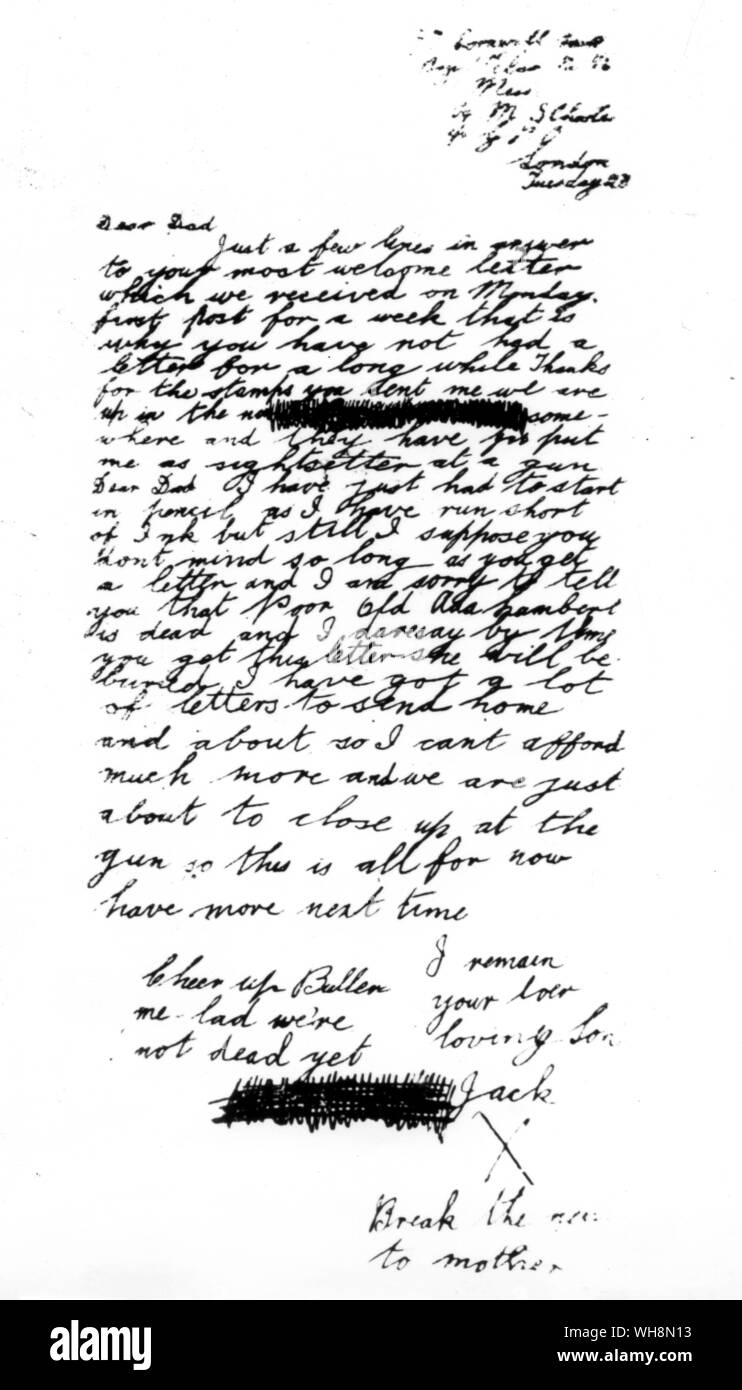 Cornwall
Mess
M S Chester
London
Tuesday 23
Dear Dad
Just a few lines in answer
to your most welcome letter
which we received on Monday.
first post for a week that is
why you have not had a
letter for a long while Thanks
for the stamps you sent me we are
up in the some-
where and they have put
me as sightsetter at a gun
Dear Dad I have just had to start
in pencil as I have run short
of Ink but still I suppose you
dont mind so long as you get
a letter and I am sorry to tell
you that Poor Old Ada Lambert
is dead and I daresay by time
you get this letter she will be
buried. I have got a lot
of letters to send home
and about so I cant afford
much more and we are just
about to close up at the
gun so this is all for now
have more next time
I remain
your
loving Son
Jack
Cheer up Bullen
me lad we're
not dead yet
Break the
to mother
alamy
Image ID: WH8N13
www.alamy.com